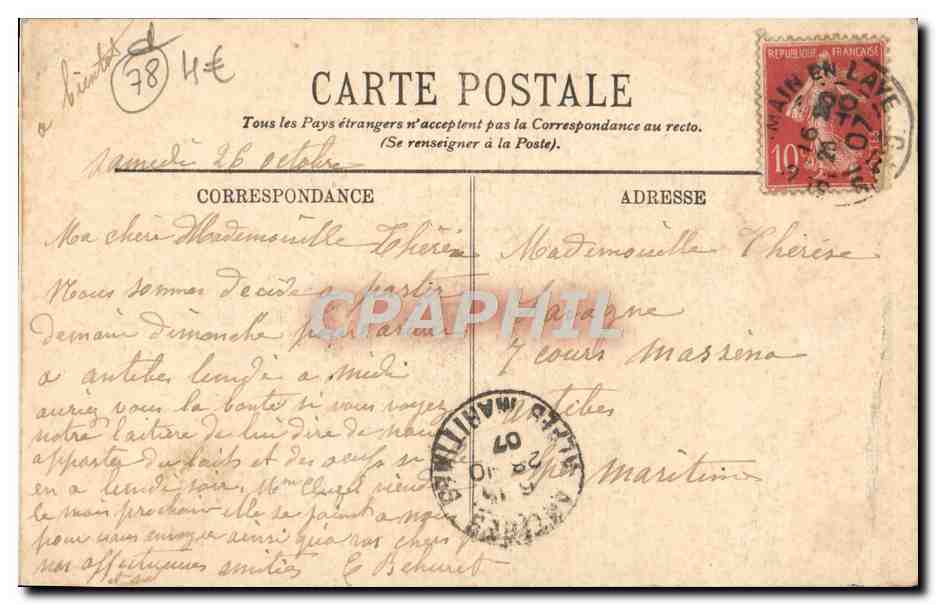 a bientot
78 4€
CARTE POSTALE
Tous les Pays étrangers n'acceptent pas la Correspondance au recto.
(Se renseigner à la Poste).
REPUBLIQUE FRANÇAISE
10
MAIN EN LAYE
07
samedi 26 octobre
CORRESPONDANCE
Ma chère Mademoiselle Thérèse
Nous sommes decidé a partir
demain dimanche pour arriver
a antibes lundi a midi
auriez vous la bonté si vous voyez
notre laitière de lui dire de nous
apporter du lait et des oeufs si
en a lundi soir. Mme vient
le mois prochain elle se joint a nous
pour vous envoyer ainsi qu'a vos chers
nos affectueuses amitiés E Behuret
ADRESSE
Mademoiselle Thérèse
7 cours Masséna
antibes
alpes Maritimes
ANTIBES ALPES MARITIMES
28 -10
07
CPAPHIL